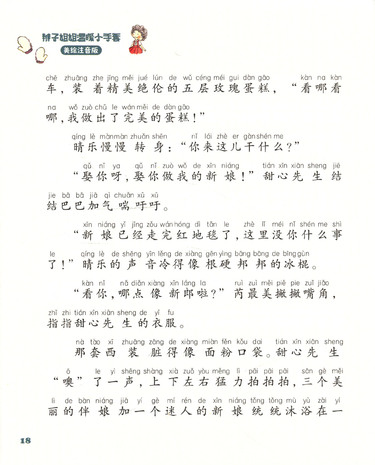 辫子姐姐温暖小手套
美绘注音版
chē zhuāng zhe jīng měi jué lún de wǔ céng méi gui dàn gāo kàn na kàn
车，装着精美绝伦的五层玫瑰蛋糕，“看哪看
na wǒ zuò chū le wán měi de dàn gāo
哪，我做出了完美的蛋糕！”
qíng lè màn màn zhuǎn shēn nǐ lái zhè er gàn shén me
晴乐慢慢转身：“你来这儿干什么？”
qǔ nǐ ya qǔ nǐ zuò wǒ de xīn niáng tián xīn xiān sheng jiē
“娶你呀，娶你做我的新娘！”甜心先生结
jie bā bā jiā qì chuǎn xū xū
结巴巴加气喘吁吁。
xīn niáng yǐ jīng zǒu wán hóng dì tǎn le zhè lǐ méi nǐ shén me shì
“新娘已经走完红地毯了，这里没你什么事
le qíng lè de shēng yīn lěng de xiàng gēn yìng bāng bāng de bīng gùn
了！”晴乐的声音冷得像根硬邦邦的冰棍。
kàn nǐ nǎ diǎn xiàng xīn láng la ruì zuì měi piě pie zuǐ jiǎo
“看你，哪点像新郎啦？”芮最美撇撇嘴角，
zhǐ zhi tián xīn xiān sheng de yī fu
指指甜心先生的衣服。
nà tào xī zhuāng zāng de xiàng miàn fěn kǒu dai tián xīn xiān sheng
那套西装脏得像面粉口袋。甜心先生
ō le yì shēng shàng xià zuǒ yòu měng lì pāi pāi pāi sān gè měi
“噢”了一声，上下左右猛力拍拍拍，三个美
lì de bàn niáng jiā yí gè mí rén de xīn niáng tǒng tǒng mù yù zài yí
丽的伴娘加一个迷人的新娘统统沐浴在一
18